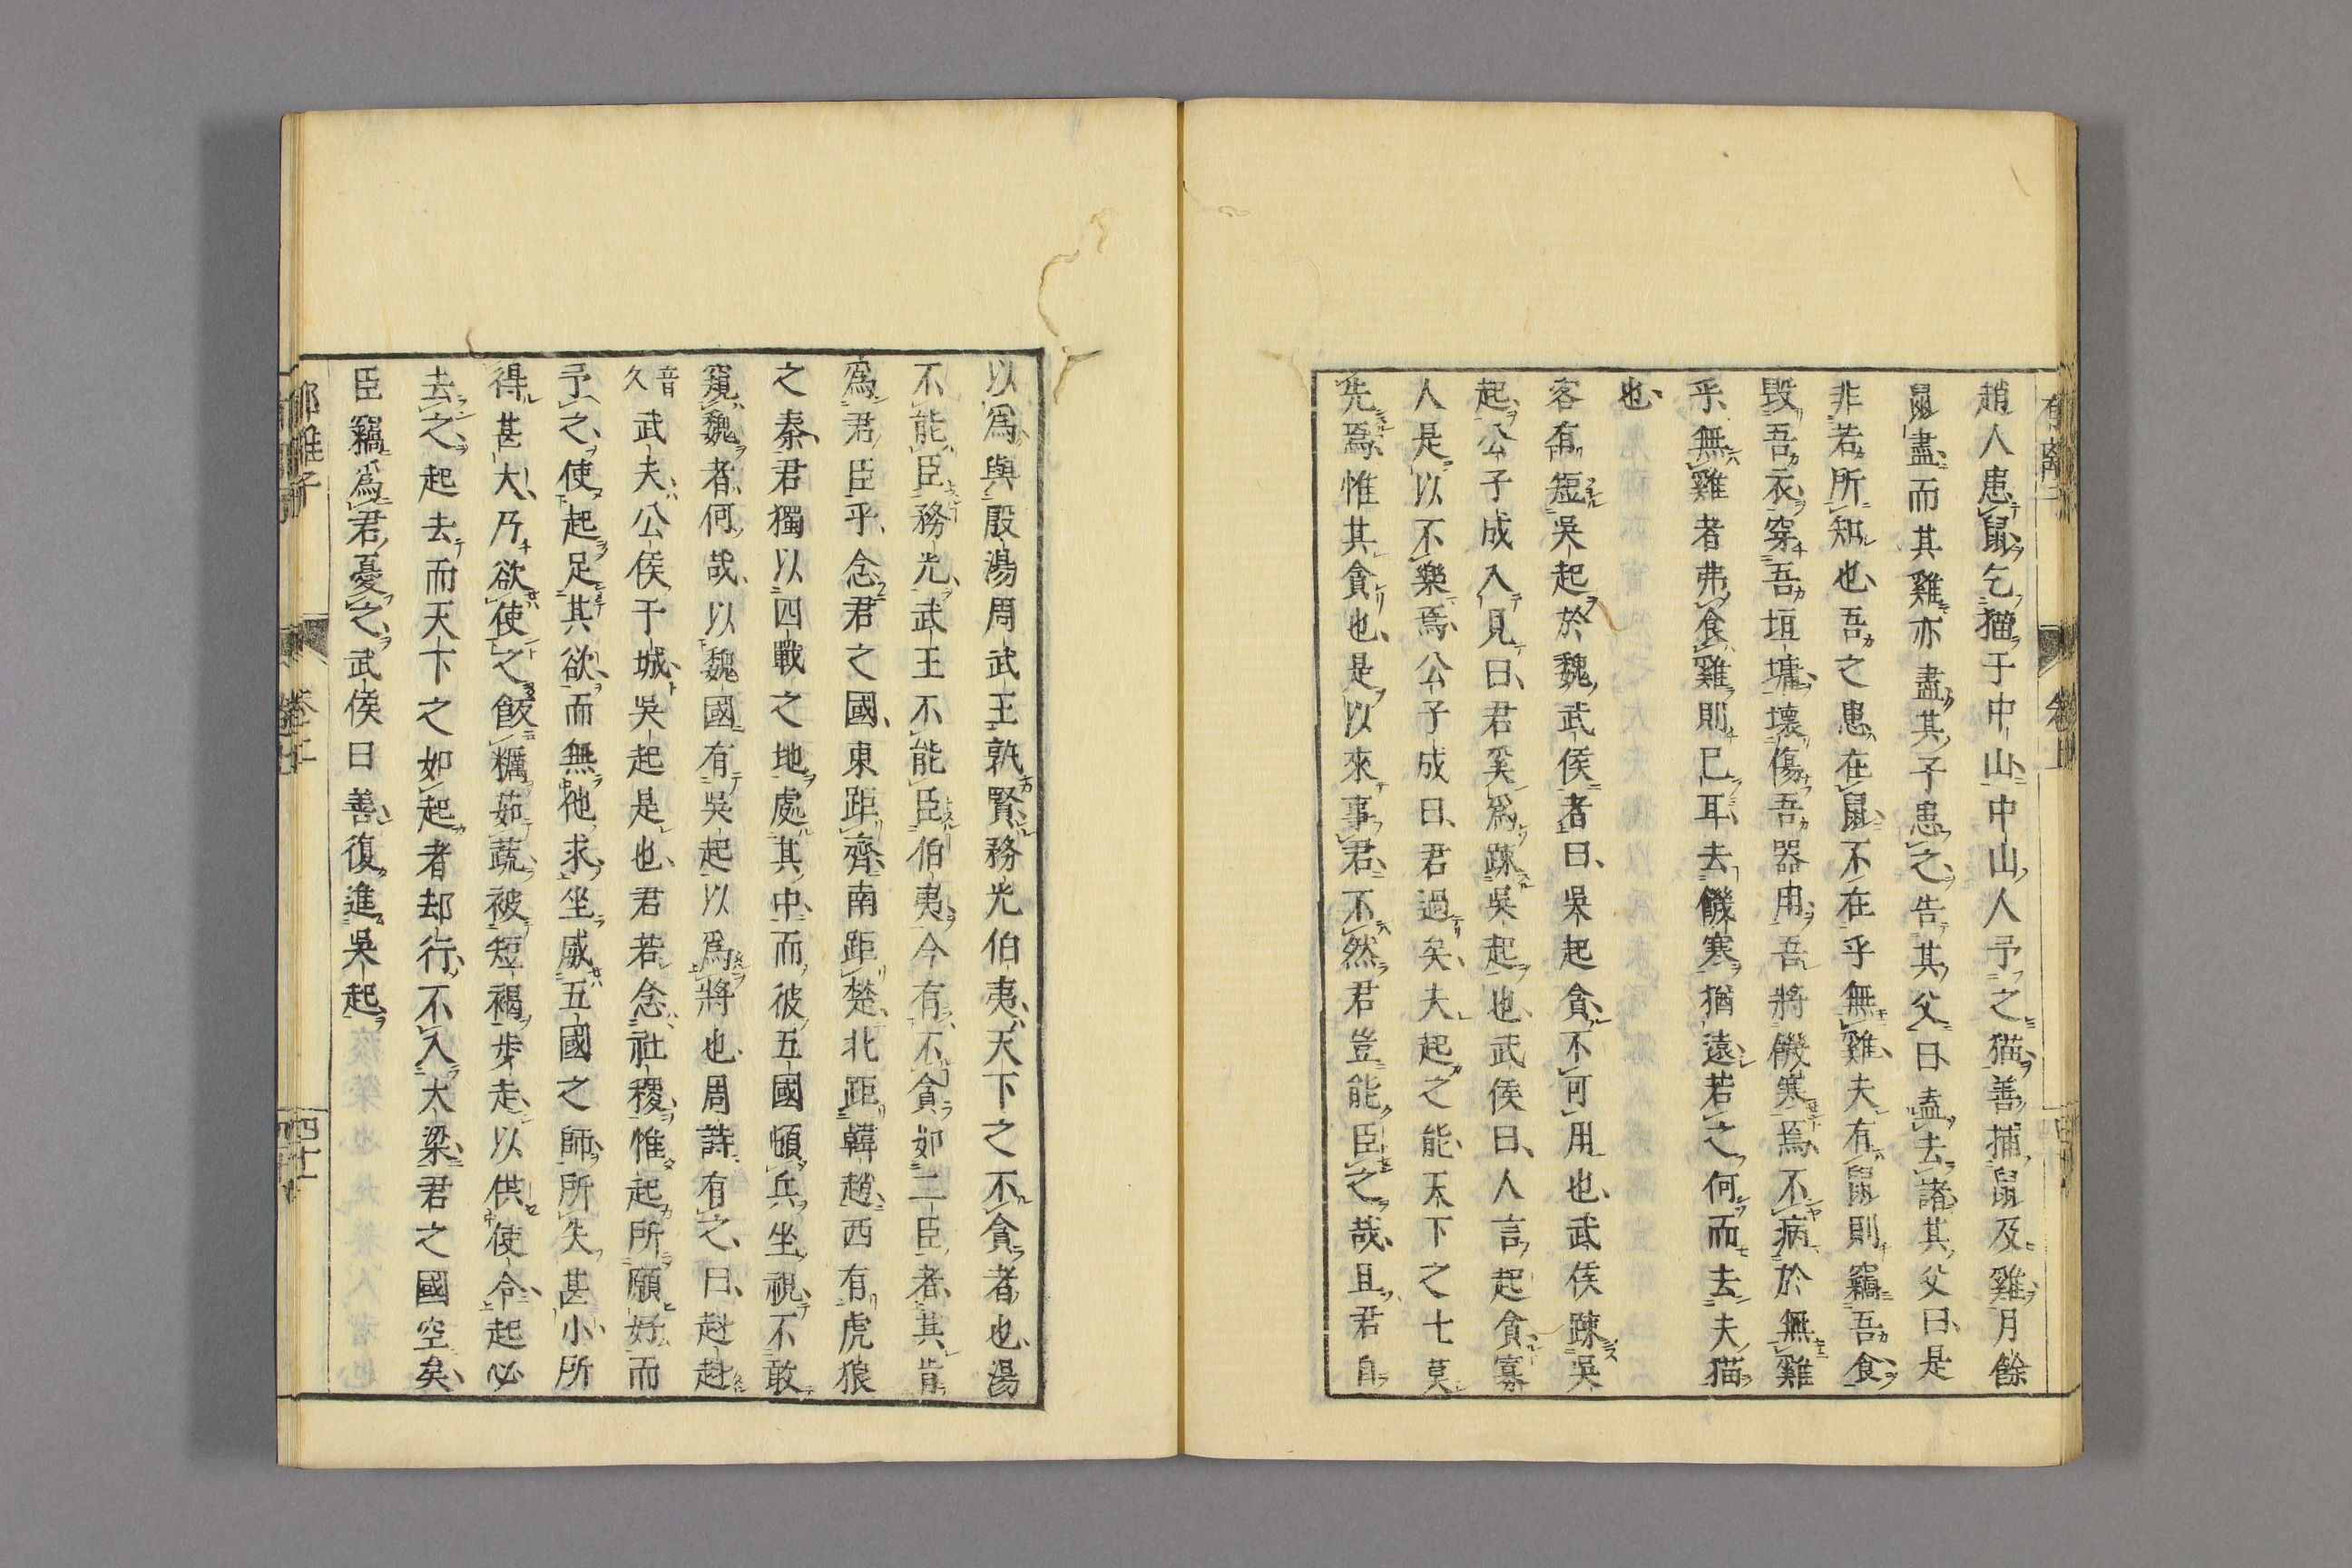 趙人患鼠乞猫于中山中山人予之猫善捕鼠及雞月餘
鼠盡而其雞亦盡其子患之告其父曰盍去諸其父曰是
非若所知也吾之患在鼠不在乎無雞夫有鼠則竊吾食
毀吾衣穿吾垣墉壞傷吾器用吾將饑寒焉不病於無雞
乎無雞者弗食雞則已耳去饑寒猶遠若之何而去夫猫
也
客有短吳起於魏武侯者曰吳起貪不可用也武侯踈吳
起公子成入見曰君奚爲踈吳起也武侯曰人言起貪寡
人是以不樂焉公子成曰君過矣夫起之能天下之士莫
先焉惟其貪也是以來事君不然君豈能臣之哉且君自
以爲與殷湯周武王孰賢務光伯夷天下之不貪者也湯
不能臣務光武王不能臣伯夷今有不貪如二臣者其肯
爲君臣乎念君之國東距齊南距楚北距韓趙西有虎狼
之秦君獨以四戰之地處其中而彼五國頓兵坐視不敢
窺魏者何哉以魏國有吳起以爲將也周詩有之曰赳赳
音久武夫公侯干城吳起是也君若念社稷惟起所願好而
予之使起足其欲而無他求坐威五國之師所失甚小所
得甚大乃欲使之飯糲茹蔬被短褐步走以供使令起必
去之起去而天下之如起者却行不入大梁君之國空矣
臣竊爲君憂之武侯曰善復進吳起
郁離子
卷上
四十